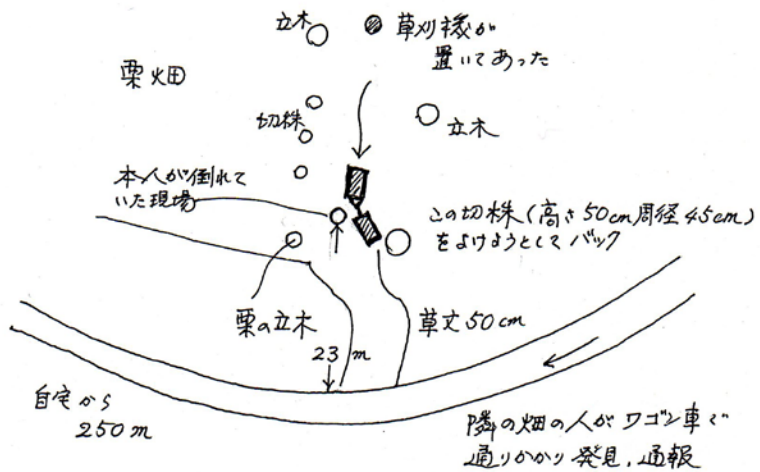 立木
草刈機が
置いてあった
栗畑
切株
立木
本人が倒れて
いた現場
この切株(高さ50cm周径45cm)
をよけようとしてバック
栗の立木
草丈50cm
23m
自宅から
250m
隣の畑の人がワゴン車で
通りかかり発見、通報